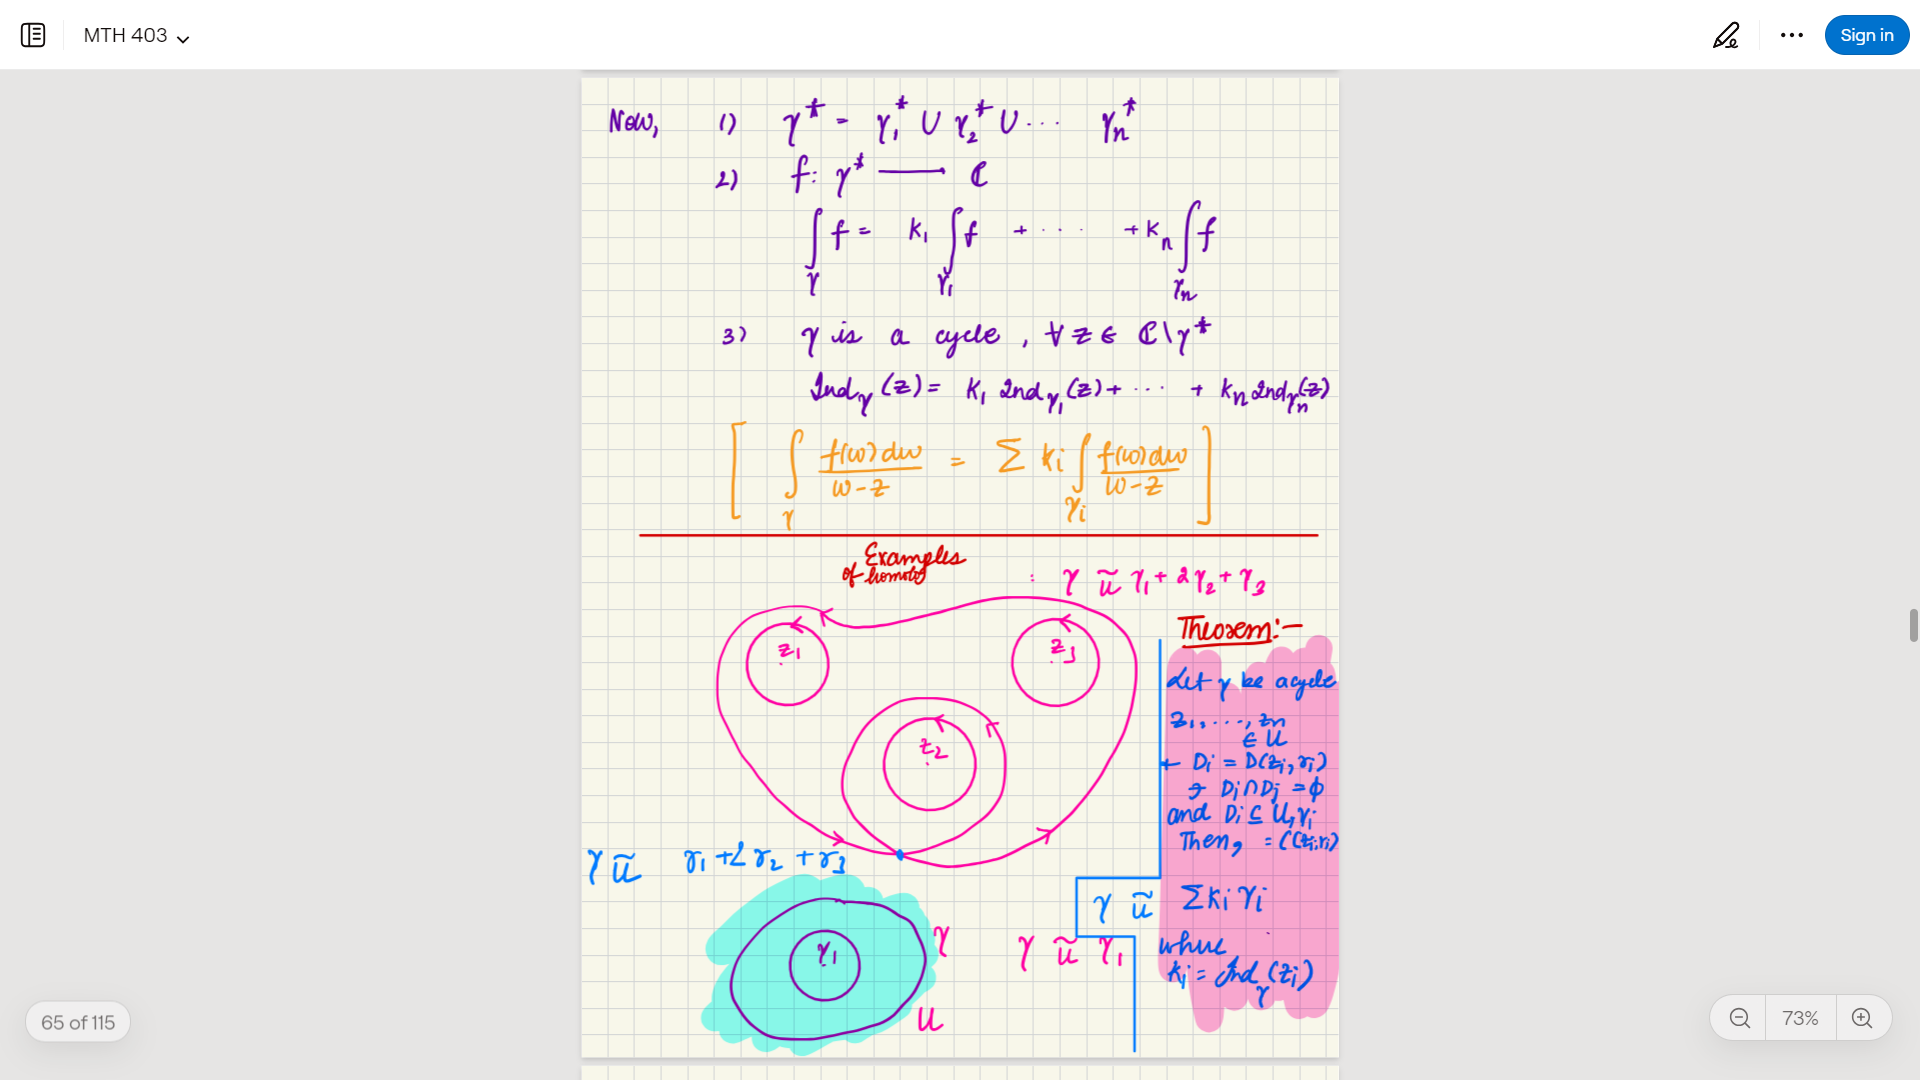 MTH 403
Sign in
Now, 1) γ* = γ₁* ∪ γ₂* ∪ ... γₙ*
2) f: γ* ⟶ ℂ
∫_γ f = k₁ ∫_γ₁ f + ... + kₙ ∫_γₙ f
3) γ is a cycle, ∀ z ∈ ℂ\γ*
Ind_γ (z) = k₁ Ind_γ₁ (z) + ... + kₙ Ind_γₙ (z)
[ ∫_γ f(w)dw / w-z = Σ kᵢ ∫_γᵢ f(w)dw / w-z ]
Examples
of
: γ ũ γ₁ + 2γ₂ + γ₃
z₁
z₃
z₂
γ ũ γ₁ + 2γ₂ + γ₃
γ₁
γ
U
γ ũ γ₁
Theorem:-
Let γ be a cycle
z₁, ..., zₙ
∈ U
+ Dᵢ = D(zᵢ, rᵢ)
∋ Dᵢ ∩ Dⱼ = ϕ
and Dᵢ ⊆ U, γᵢ
Then, = C(zᵢ, rᵢ)
γ ũ Σ kᵢ γᵢ
where
kᵢ = Ind_γ (zᵢ)
65 of 115
73%